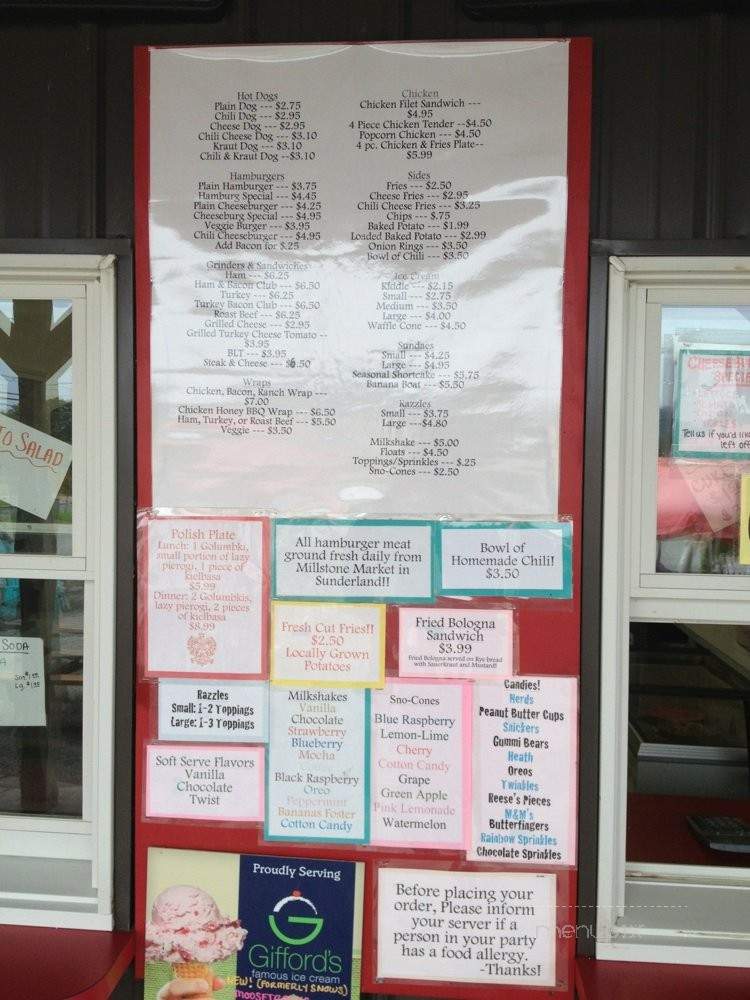 Hot Dogs
Plain Dog --- $2.75
Chili Dog --- $2.95
Cheese Dog --- $2.95
Chili Cheese Dog --- $3.10
Kraut Dog --- $3.10
Chili & Kraut Dog --$3.10
Hamburgers
Plain Hamburger --- $3.75
Hamburg Special --- $4.45
Plain Cheeseburger --- $4.25
Cheeseburg Special --- $4.95
Veggie Burger --- $3.95
Chili Cheeseburger --- $4.95
Add Bacon for $.25
Grinders & Sandwiches
Ham --- $6.25
Ham & Bacon Club --- $6.50
Turkey --- $6.25
Turkey Bacon Club --- $6.50
Roast Beef --- $6.25
Grilled Cheese --- $2.95
Grilled Turkey Cheese Tomato --
$3.95
BLT --- $3.95
Steak & Cheese --- $6.50
Wraps
Chicken, Bacon, Ranch Wrap ---
$7.00
Chicken Honey BBQ Wrap --- $6.50
Ham, Turkey, or Roast Beef --- $5.50
Veggie --- $3.50
Chicken
Chicken Filet Sandwich ---
$4.95
4 Piece Chicken Tender --$4.50
Popcorn Chicken --- $4.50
4 pc. Chicken & Fries Plate--
$5.99
Sides
Fries --- $2.50
Cheese Fries --- $2.95
Chili Cheese Fries --- $3.25
Chips --- $.75
Baked Potato --- $1.99
Loaded Baked Potato --- $2.99
Onion Rings --- $3.50
Bowl of Chili --- $3.50
Ice Cream
Kiddie --- $2.15
Small --- $2.75
Medium --- $3.50
Large --- $4.00
Waffle Cone --- $4.50
Sundaes
Small --- $4.25
Large --- $4.95
Seasonal Shortcake --- $5.75
Banana Boat --- $5.50
Razzles
Small --- $3.75
Large ---$4.80
Milkshake --- $5.00
Floats --- $4.50
Toppings/Sprinkles --- $.25
Sno-Cones --- $2.50
TO SALAD
SODA
Tell us if you'd like
left off
Polish Plate
Lunch: 1 Golumbki,
small portion of lazy
pierogi, 1 piece of
kielbasa
$5.99
Dinner: 2 Golumbkis,
lazy pierogi, 2 pieces
of kielbasa
$8.99
All hamburger meat
ground fresh daily from
Millstone Market in
Sunderland!!
Bowl of
Homemade Chili!
$3.50
Fresh Cut Fries!!
$2.50
Locally Grown
Potatoes
Fried Bologna
Sandwich
$3.99
Fried Bologna served on Rye bread
with Sauerkraut and Mustard!!
Razzles
Small: 1-2 Toppings
Large: 1-3 Toppings
Soft Serve Flavors
Vanilla
Chocolate
Twist
Milkshakes
Vanilla
Chocolate
Strawberry
Blueberry
Mocha
Black Raspberry
Oreo
Peppermint
Bananas Foster
Cotton Candy
Sno-Cones
Blue Raspberry
Lemon-Lime
Cherry
Cotton Candy
Grape
Green Apple
Pink Lemonade
Watermelon
Candies!
Nerds
Peanut Butter Cups
Snickers
Gummi Bears
Heath
Oreos
Twinkies
Reese's Pieces
M&M's
Butterfingers
Rainbow Sprinkles
Chocolate Sprinkles
Proudly Serving
G
Gifford's
famous ice cream
NEW! (FORMERLY SNOWS)
Before placing your
order, Please inform
your server if a
person in your party
has a food allergy.
-Thanks!